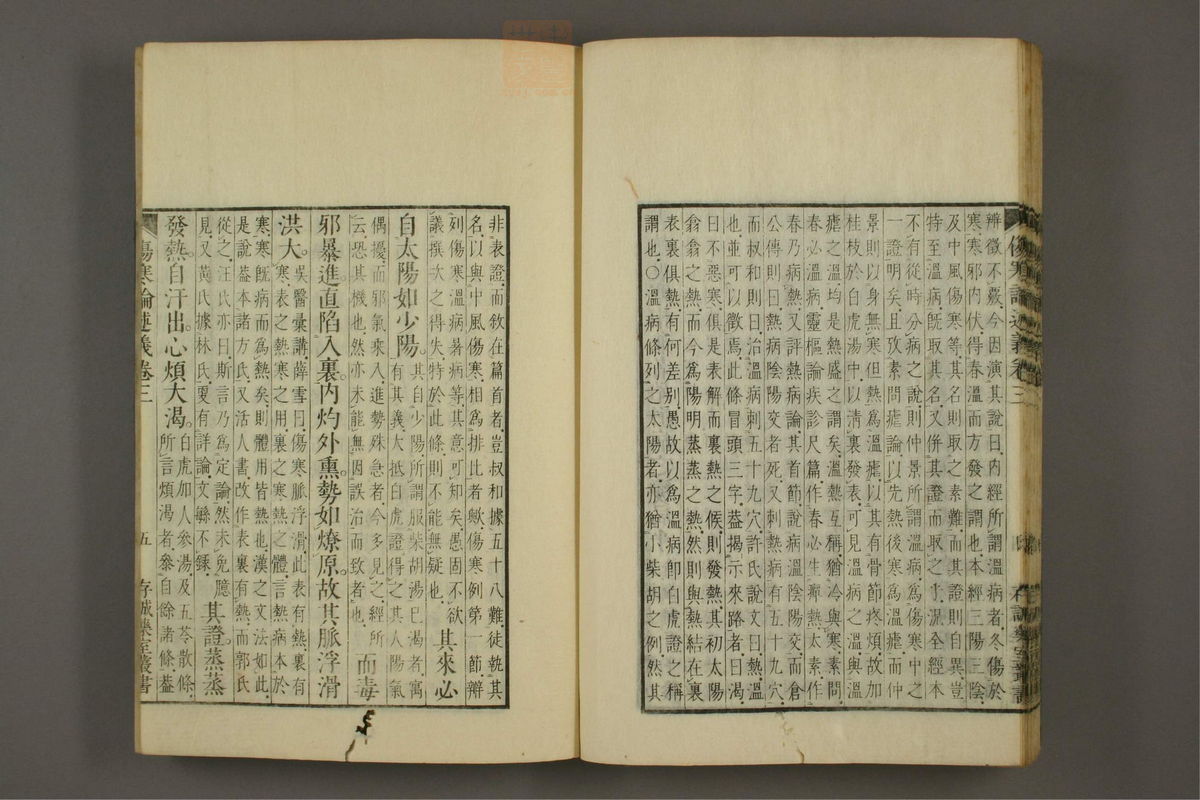 傷寒論述義卷三
辨徵不覈今因演其說曰內經所謂溫病者冬傷於
寒寒邪內伏得春溫而方發之謂也本經三陽三陰
及中風傷寒等其名則取之素難而其證則自異豈
特至溫病既取其名又併其證而取之乎況全經本
不有從時分病之說則仲景所謂溫病爲傷寒中之
一證明矣且攷素問瘧論以先熱後寒爲溫瘧而仲
景則以身無寒但熱爲溫瘧以其有骨節疼煩故加
桂枝於白虎湯中以清裏發表可見溫病之溫與溫
瘧之溫均是熱盛之謂矣溫熱互稱猶冷與寒素問
春必溫病靈樞論疾診尺篇作春必生癉熱太素作
春乃病熱又評熱病論其首節說病溫陰陽交而倉
公傳則曰熱病陰陽交者死又刺熱病有五十九穴
而叔和則曰治溫病刺五十九穴許氏說文曰熱溫
也並可以徵焉此條冒頭三字蓋揭示來路者曰渴
曰不惡寒俱是表解而裏熱之候則發熱其初太陽
翕翕之熱而今爲陽明蒸蒸之熱然則與熱結在裏
表裏俱熱有何差别愚故以爲溫病卽白虎證之稱
謂也○溫病條列之太陽者亦猶小柴胡之例然其
非表證而敘在篇首者豈叔和據五十八難徒執其
名以與中風傷寒相爲排比者歟傷寒例第一節辨
列傷寒溫病暑病等其意可知矣愚固不欲
議撰次之得失特於此條則不能無疑也其來必
自太陽如少陽其自少陽所謂服柴胡湯已渴者寓
有其義大抵白虎證得之其人陽氣
偶擾而邪氣乘入進勢殊急者今多見之經所
云恐其機也然亦未能無因誤治而致者也而毒
邪暴進直陷入裏內灼外熏勢如燎原故其脈浮滑
洪大吳醫彙講薛雪曰傷寒脈浮滑此表有熱裏有
寒表之熱寒之用裏之寒熱之體言熱病本於
寒寒既病而爲熱矣則體用皆熱也漢之文法如此
是說蓋本諸方氏又活人書改作表裏有熱而郭氏
從之汪氏亦曰斯言乃爲定論然未免臆
見又黃氏據林氏更有詳論文繇不錄其證蒸蒸
發熱自汗出心煩大渴白虎加人參湯及五苓散條
所言煩渴者參自餘諸條蓋
傷寒論述義卷三
五
存誠藥室叢書